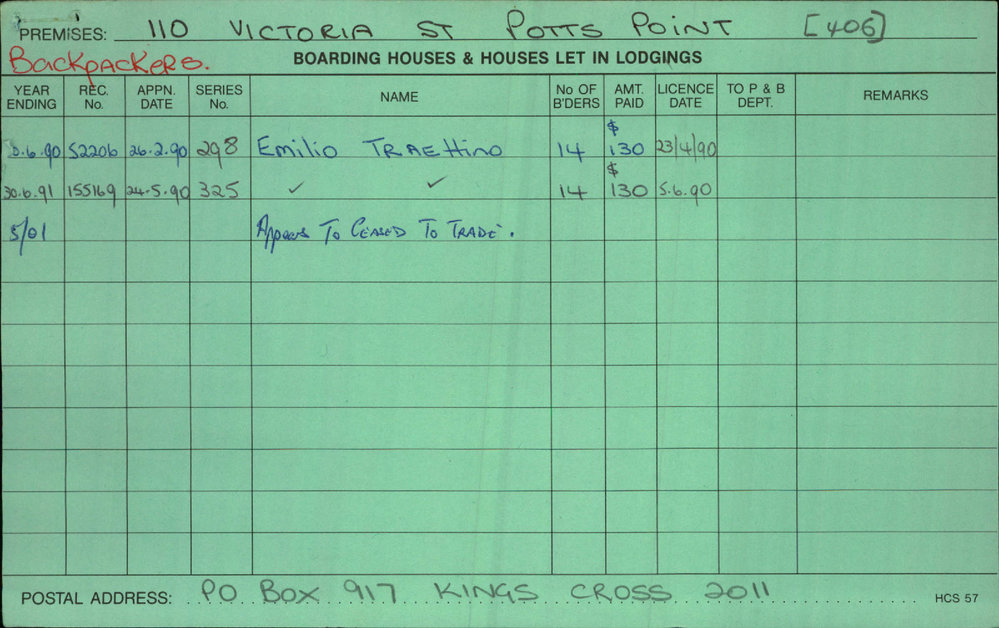 PREMISES: 110 VICTORIA ST POTTS POINT [406]
Backpackers.
BOARDING HOUSES & HOUSES LET IN LODGINGS
YEAR ENDING REC. No. APPN. DATE SERIES No. NAME No OF B'DERS AMT. PAID LICENCE DATE TO P & B DEPT. REMARKS
0.6.90 52206 26.2.90 298 Emilio TRAEttino 14 $130 23/4/90
30.6.91 155169 24.5.90 325 ✓ ✓ 14 $130 5.6.90
5/01 Appears To CEASED To TRADE.
POSTAL ADDRESS: PO BOX 917 KINGS CROSS 2011
HCS 57